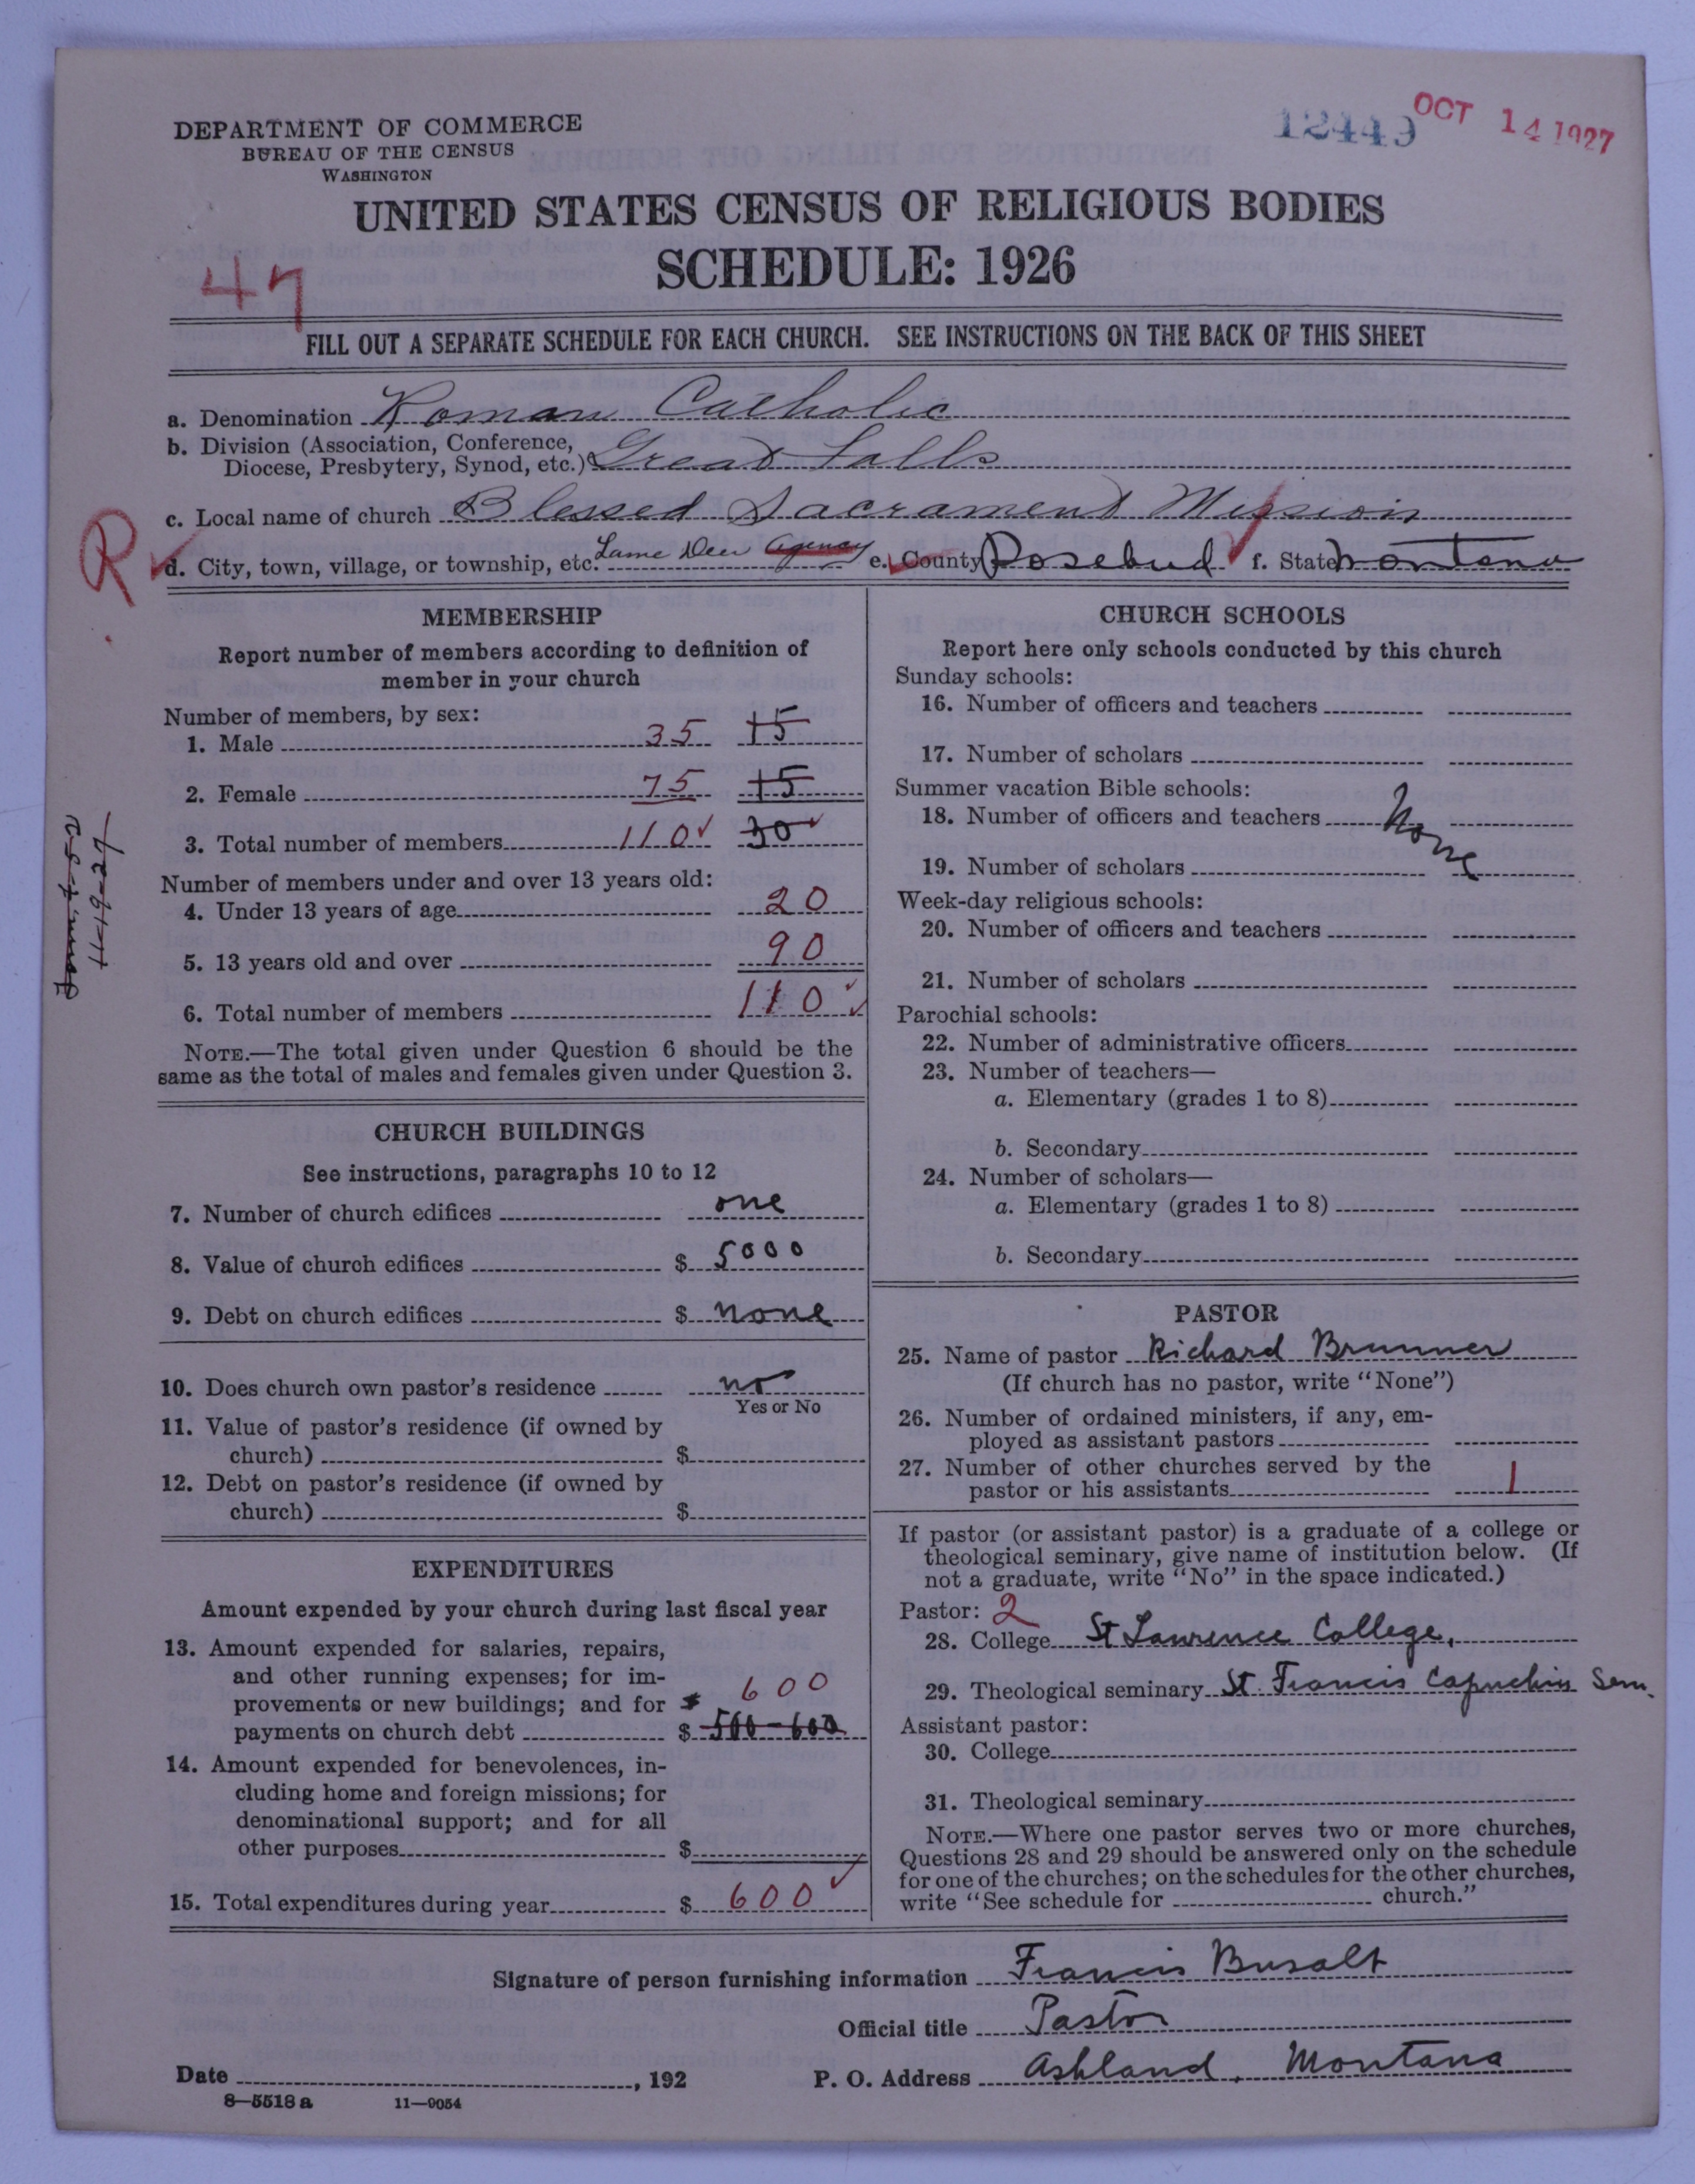 DEPARTMENT OF COMMERCE
BUREAU OF THE CENSUS
WASHINGTON
12449
OCT 14 1927
UNITED STATES CENSUS OF RELIGIOUS BODIES
SCHEDULE: 1926
47
FILL OUT A SEPARATE SCHEDULE FOR EACH CHURCH. SEE INSTRUCTIONS ON THE BACK OF THIS SHEET
a. Denomination Roman Catholic
b. Division (Association, Conference,
Diocese, Presbytery, Synod, etc.) Great Falls
c. Local name of church Blessed Sacrament Mission
R
d. City, town, village, or township, etc. Lame Deer Agency e. County Rosebud f. State Montana
MEMBERSHIP
Report number of members according to definition of
member in your church
Number of members, by sex:
1. Male 35 15
2. Female 75 15
3. Total number of members 110 30
Number of members under and over 13 years old:
4. Under 13 years of age 20
5. 13 years old and over 90
6. Total number of members 110
NOTE.—The total given under Question 6 should be the
same as the total of males and females given under Question 3.
CHURCH BUILDINGS
See instructions, paragraphs 10 to 12
7. Number of church edifices one
8. Value of church edifices $ 5000
9. Debt on church edifices $ none
10. Does church own pastor's residence no
Yes or No
11. Value of pastor's residence (if owned by
church) $
12. Debt on pastor's residence (if owned by
church) $
EXPENDITURES
Amount expended by your church during last fiscal year
13. Amount expended for salaries, repairs,
and other running expenses; for im-
provements or new buildings; and for 600
payments on church debt $ 500-600
14. Amount expended for benevolences, in-
cluding home and foreign missions; for
denominational support; and for all
other purposes $
15. Total expenditures during year $ 600
CHURCH SCHOOLS
Report here only schools conducted by this church
Sunday schools:
16. Number of officers and teachers
17. Number of scholars
Summer vacation Bible schools:
18. Number of officers and teachers None
19. Number of scholars
Week-day religious schools:
20. Number of officers and teachers
21. Number of scholars
Parochial schools:
22. Number of administrative officers
23. Number of teachers—
a. Elementary (grades 1 to 8)
b. Secondary
24. Number of scholars—
a. Elementary (grades 1 to 8)
b. Secondary
PASTOR
25. Name of pastor Richard Brunner
(If church has no pastor, write "None")
26. Number of ordained ministers, if any, em-
ployed as assistant pastors
27. Number of other churches served by the
pastor or his assistants 1
If pastor (or assistant pastor) is a graduate of a college or
theological seminary, give name of institution below. (If
not a graduate, write "No" in the space indicated.)
Pastor: 2
28. College St Lawrence College,
29. Theological seminary St. Francis Capuchin Sem.
Assistant pastor:
30. College
31. Theological seminary
NOTE.—Where one pastor serves two or more churches,
Questions 28 and 29 should be answered only on the schedule
for one of the churches; on the schedules for the other churches,
write "See schedule for church."
Signature of person furnishing information Francis Busalt
Official title Pastor
Date , 192
P. O. Address Ashland, Montana
8—5518a 11—9054